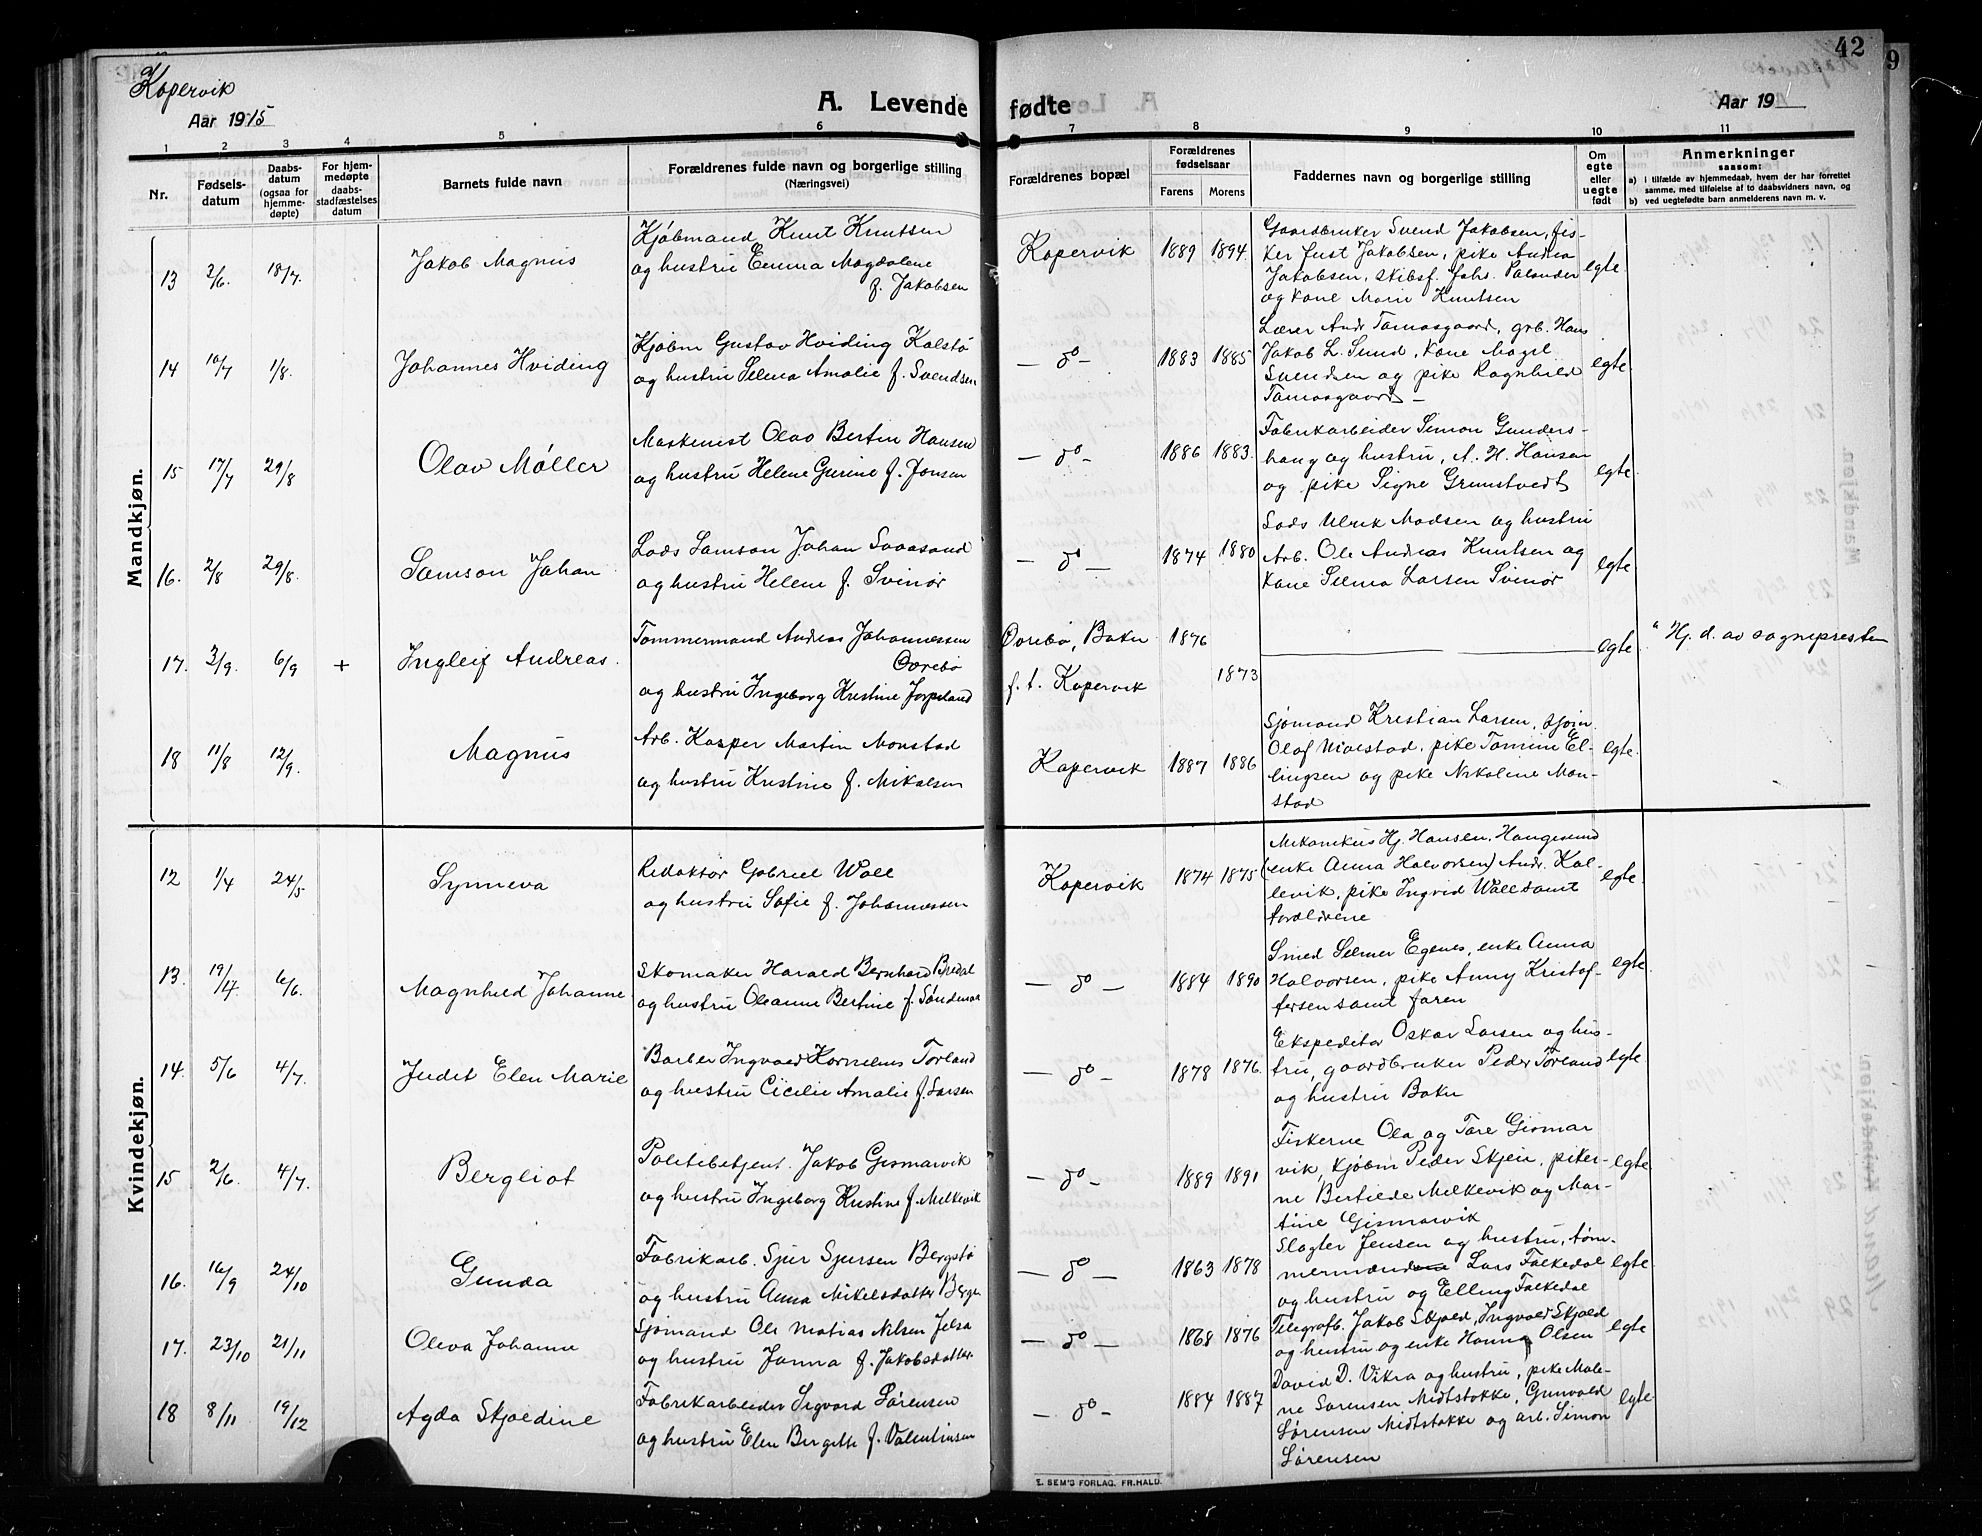 Kopervik
Aar 1915
A. Levende fødte
Aar 19
42
9
1 2 3 4 5 6 7 8 9 10 11
Nr.
Fødsels-
datum
Daabs-
datum
(ogsaa for
hjemme-
døpte)
For hjem-
medøpte
daabs-
stadfæstelses
datum
Barnets fulde navn
Forældrenes fulde navn og borgerlige stilling
(Næringsvei)
Forældrenes bopæl
Forældrenes
fødselsaar
Farens Morens
Faddernes navn og borgerlige stilling
Om
egte
eller
uegte
født
Anmerkninger
saasom:
a) i tilfælde av hjemmedaab, hvem der har forrettet
samme, med tilføielse af to daabsvidners navn, og
b) ved uegtefødte barn anmelderens navn m. v.
Mandkjøn.
13 2/6. 18/7. Jakob Magnus
Kjøbmand Knut Knutsen
og hustru Emma Magdalene
f. Jakobsen
Kopervik 1889 1894
Gaardbruker Svend Jakobsen, fis-
ker Just Jakobsen, pike Andrea
Jakobsen, skibsf. Johs. Palander
og kone Marie Knutsen
egte
14 10/7 1/8. Johannes Hviding
Kjøbm Gustav Hviding Kalstø
og hustru Selma Amalie f. Svendsen
— do — 1883 1885
Lærer Andr Tamasgaard, grb. Hans
Jakob L. Sund, kone Magd.
Svendsen og pike Ragnhild
Tamasgaard —
egte
15 17/7 29/8 Olav Møller
Maskinist Olav Bertin Hansen
og hustru Helene Gurine f. Jonsen
— do — 1886 1883.
Fabrikarbeider Simon Gunders-
haug og hustru, A. H. Hansen
og pike Signe Grimstvedt
egte
16. 2/8 29/8. Samson Johan
Lods Samson Johan Svaasand
og hustru Helene f. Svinør
— do — 1874 1880
Lods Ulrik Madsen og hustru
Arb. Ole Andreas Knutsen og
kone Selma Larsen Svinør
egte
17. 3/9. 6/9 + Ingleif Andreas.
Tømmermand Andreas Johannessen
Ovrebø
og hustru Ingeborg Kristine Jørpeland
Ovrebø, Bokn 1876
f. t. Kopervik 1873
egte
" Hj. d. av sognepresten
18 11/8 12/9. Magnus
Arb. Kasper Martin Monstad
og hustru Kristine f. Mikalsen
Kopervik 1887 1886
Sjømand Kristian Larsen,
Olaf pike Tomine El-
lingsen og pike Nikoline Mon-
stad
egte
Kvindekjøn.
12 1/4 24/5 Synneva
Redaktør Gabriel Wall
og hustru Sofie f. Johannessen
Kopervik 1874 1875
Mekanikus Hj. Hansen, Haugesund
(enke Anna Halvorsen) Andr. Kal-
levik, pike Ingrid Wall samt
forældrene
egte
13. 19/4 6/6. Magnhild Johanne
Skomaker Harald Bernhard Bredal
og hustru Oleanne Bertine f. Søndenaa
— do — 1884 1890
Smed Selmer Egenes, enke Anna
Halvorsen, pike Anny Kristof-
fersen samt faren
egte
14. 5/6 4/7. Judit Elen Marie
Barber Ingvald Kornelius Torland
og hustru Cicilie Amalie f. Larsen
— do — 1878 1876.
Ekspeditør Oskar Larsen og hus-
tru, gaardbruker Peder Torland
og hustru Bokn
egte
15 2/6. 4/7. Bergliot
Politibetjent. Jakob Gismarvik
og hustru Ingeborg Kristine f. Melkevik
— do — 1889 1891
Fiskerne Ola og Tore Gismar
vik, kjøbm Peder Skjein, piker-
ne Bertilde Melkevik og Mar-
tine Gismarvik
egte
16. 16/9 24/10 Gunda
Fabrikarb. Sjur Sjursen Bergstø
og hustru Anna Mikelsdatter Berge
— do — 1863 1878
Slagter Jensen og hustru, tøm-
mermændene Lars Falkedal
og hustru og Elling Falkedal
egte
17. 23/10 21/11 Oleva Johanne
Sjømand Ole Matias Nilsen Jelsa
og hustru Janna f. Jakobsdatter.
— do — 1868 1876
Telegrafb. Jakob Skjold, Ingvald Skjold
og hustru og enke Hanna Olsen
egte
18 8/11 19/12 Agda Skjoldine
Fabrikarbeider Sigvard Sørensen
og hustru Elen Bergitte f. Valentinsen
— do — 1884 1887
David D. Vikra og hustru, pike Male-
ne Sørensen Midtstokke, Gunvald
Sørensen Midtstokke og arb. Simon
Sørensen
egte
E. SEM'S FORLAG, FR.HALD.